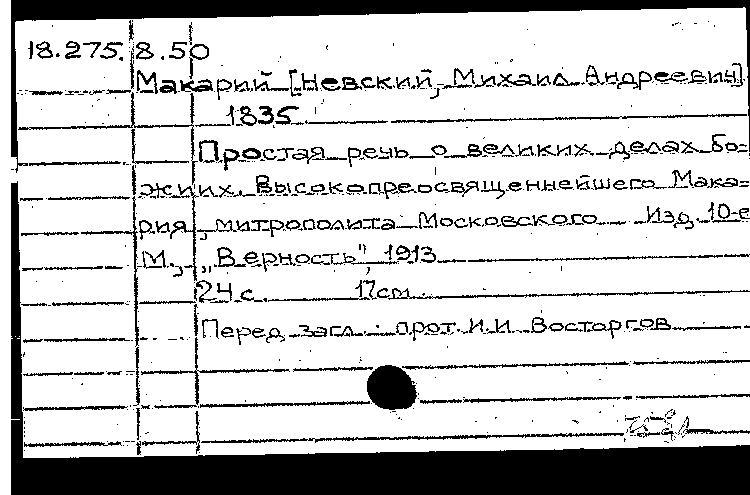 18.275.8.50
Макарий [Невский, Михаил Андреевич]
1835
Простая речь о великих делах бо=
жиих. Высокопреосвященнейшего Мака=
рия, митрополита Московского Изд. 10-е
М., „Верность" 1913
24 с. 17см.
Перед загл.: прот. И.И Восторгов